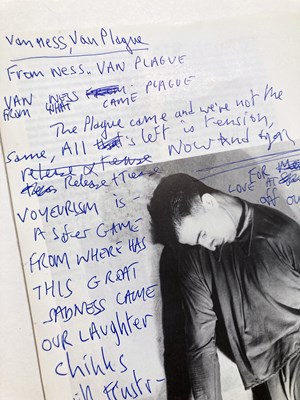 Van Ness, Van Plague
From Ness. VAN PLAGUE
VAN NESS
FROM WHAT CAME PLAGUE
The Plague came and we're not the
same, All that's left is tension,
release & tense Now And again
Release & Tense
FOR
VOYEURISM IS -
LOVE AT
off ou
A Safer GAME
FROM WHERE HAS
THIS GREAT
SADNESS CAME
OUR LAUGHTER
chinks
in frustr-